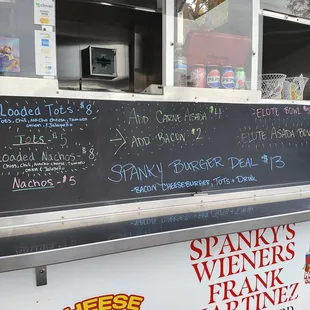 Loaded Tots $8
Tots, Chili, Nacho Cheese, Tomato
onion & Jalapeño
Tots $5
Loaded Nachos $8
Nachos $5
Add Carne Asada $4
Add Bacon $2
Spanky Burger Deal $13
-Bacon Cheeseburger, Tots & Drink
Elote Bowl
Elote Asada Bowl
pepsi
SPANKY'S
WIENERS
FRANK
MARTINEZ
CHEESE